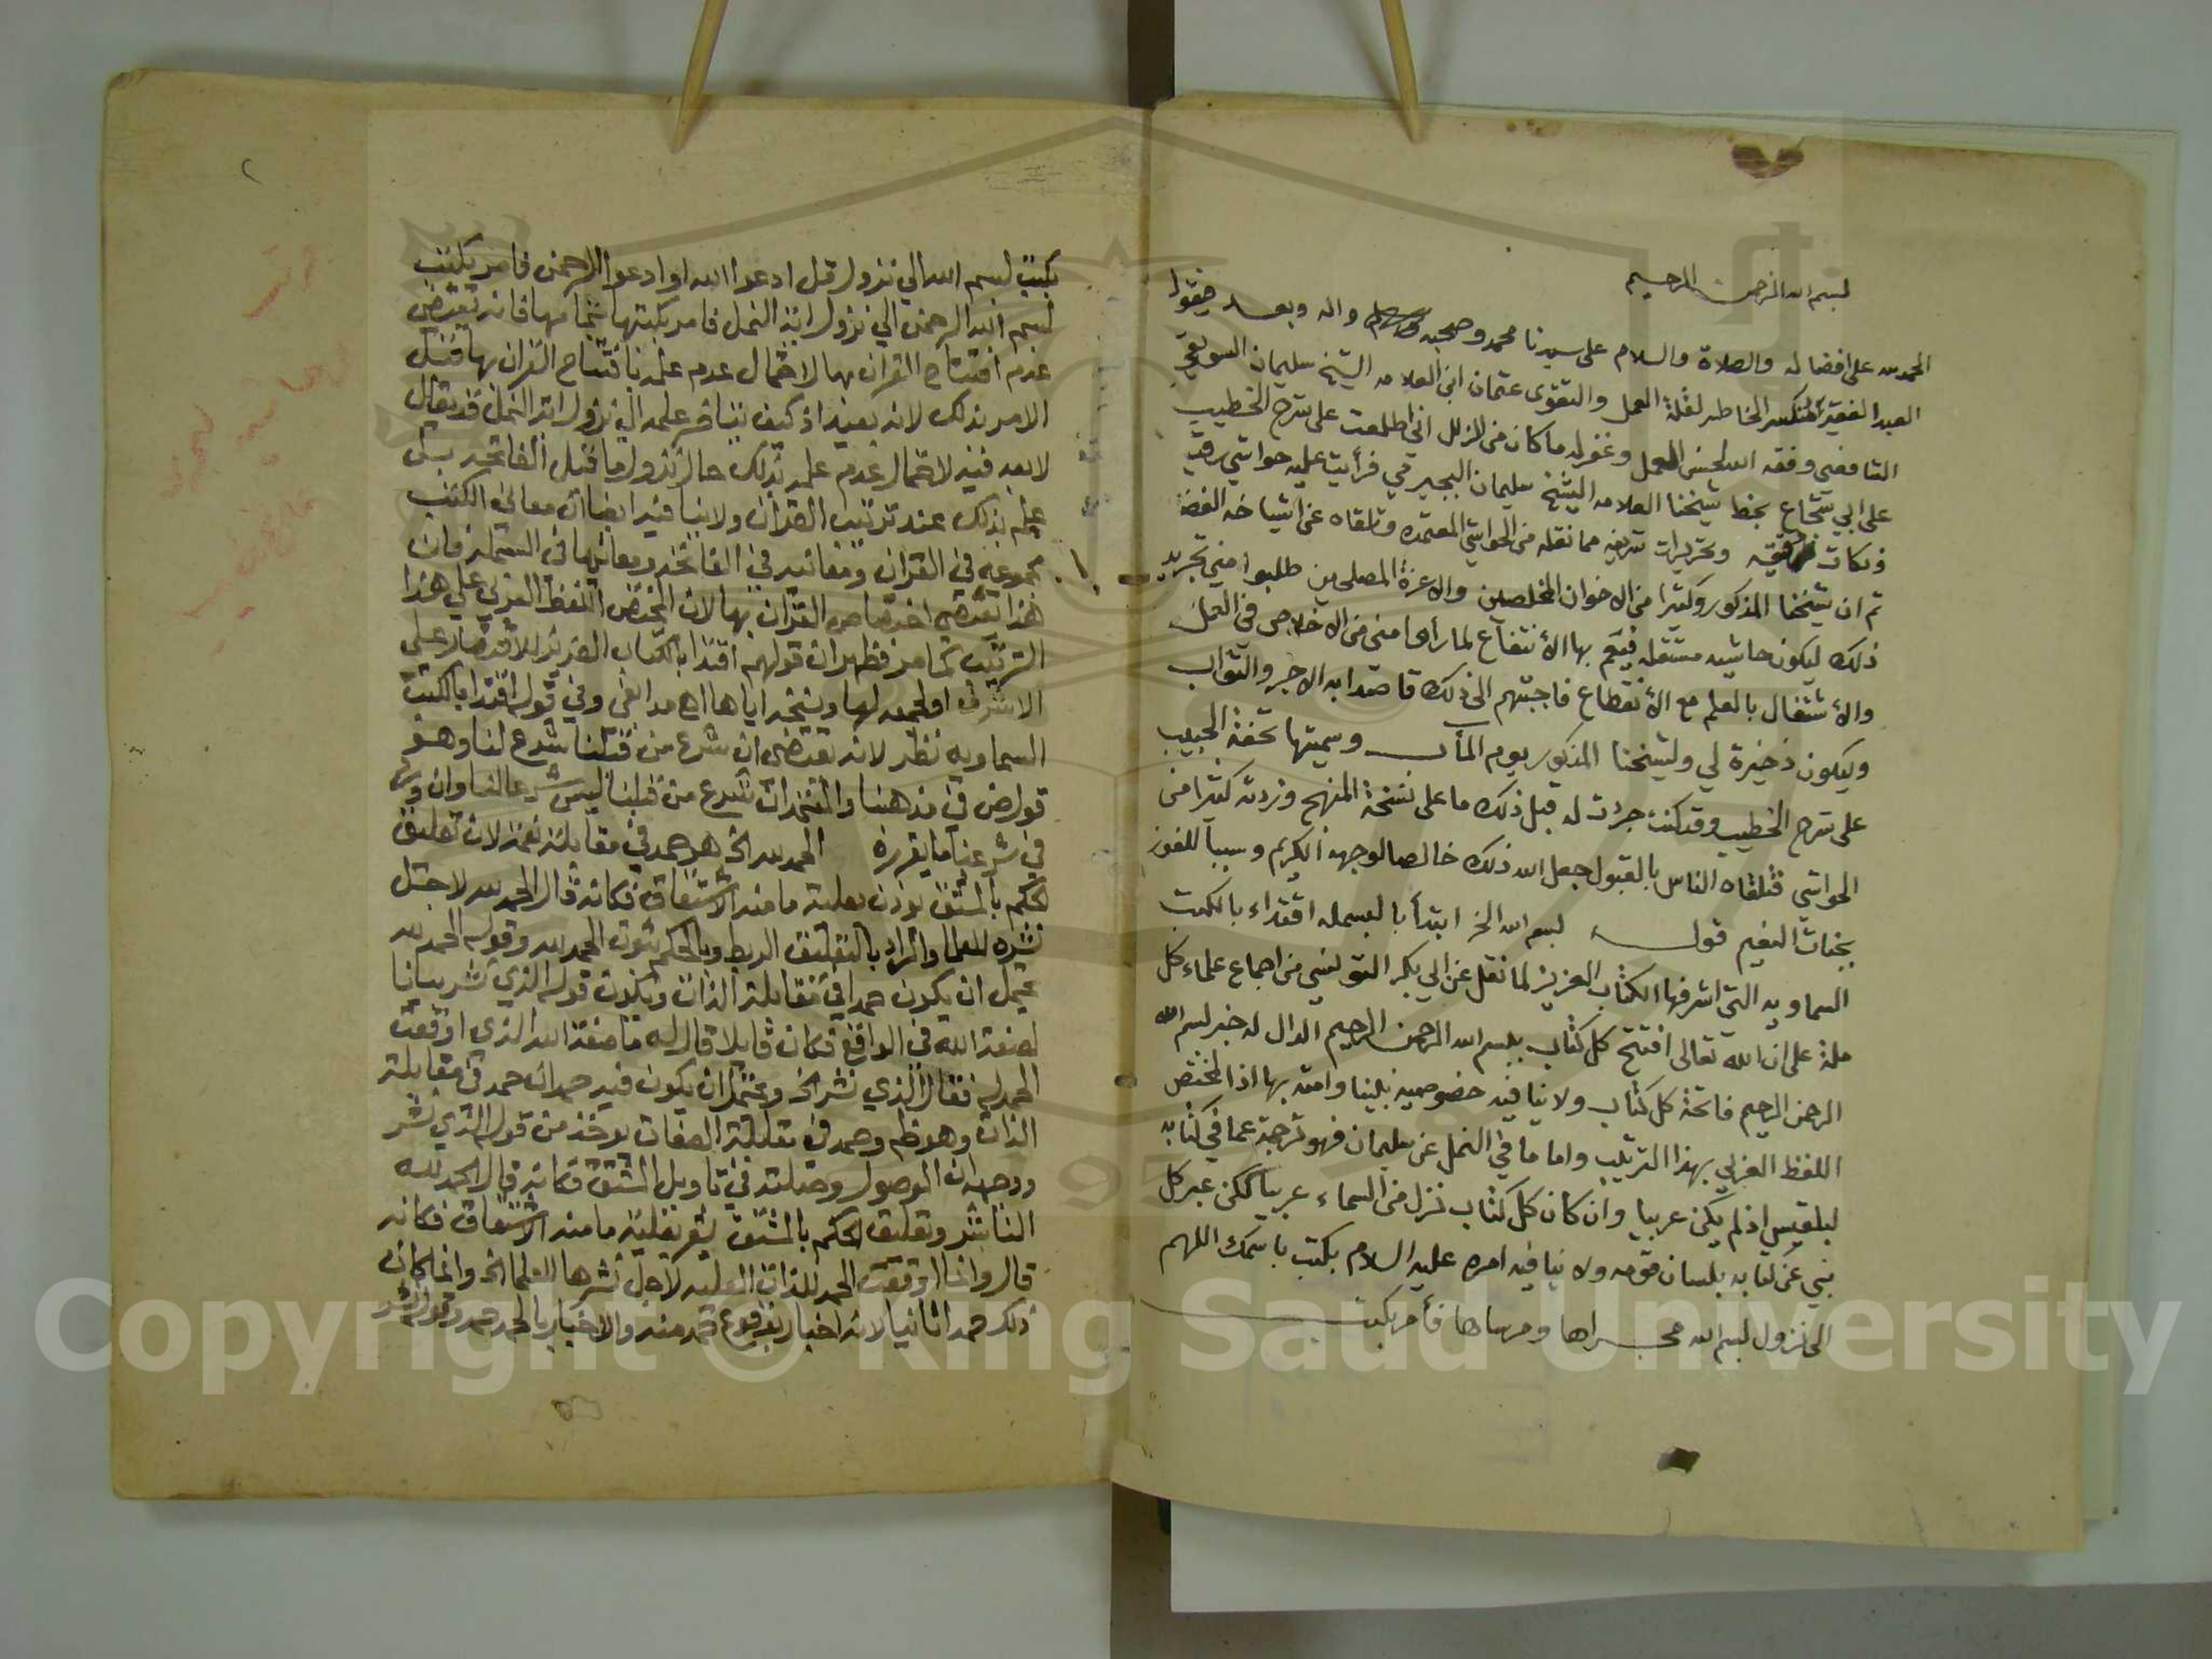 بسم الله الرحمن الرحيم
الحمد لله على افضاله والصلاة والسلام على سيدنا محمد وصحبه وسلم واله وبعد فيقول
العبد الفقير المنكسر الخاطر لقلة العمل والتقوى عثمان ابن العلامه الشيخ سليمان السويفي
الشافعي وفقه الله لحسن العمل وغفر له ما كان من الزلل اني اطلعت على شرح الخطيب
على ابي شجاع بخط شيخنا العلامه الشيخ سليمان البجيرمي فرأيت عليه حواشي رقيقة
ونكات وتحريرات شريفه مما نقله من الحواشي المعتمده وتلقاه عن اشياخه
ثم ان شيخنا المذكور وكثيرا من الاخوان المخلصين والاعزة المصلحين طلبوا مني تجريد
ذلك ليكون حاشيه مستقله فيعم بها الانتفاع لما رأى مني من الاخلاص في العمل
والاشتغال بالعلم مع الانقطاع فاجبتهم الى ذلك قاصدا به الاجر والثواب
وليكون ذخيرة لي ولشيخنا المذكور يوم المآب وسميتها تحفة الحبيب
على شرح الخطيب وقد كنت جردت له قبل ذلك ما على نسخة المنهج وزدته كثيرا من
الحواشي فتلقاه الناس بالقبول جعل الله ذلك خالصا لوجهه الكريم وسببا للفوز
بجنات النعيم قوله بسم الله الخ ابتدأ بالبسمله اقتداء بالكتب
السماويه التي اشرفها الكتاب العزيز لما نقل عن ابي بكر التونسي من اجماع علماء كل
ملة على ان الله تعالى افتتح كل كتاب ببسم الله الرحمن الرحيم الدال له خبر بسم الله
الرحمن الرحيم فاتحة كل كتاب ولا ينافيه خصوصيه نبينا وامته بها اذ المختص
اللفظ العربي بهذا الترتيب واما ما في النمل عن سليمان فهو ترجمة عما في كتابه
لبلقيس اذ لم يكن عربيا وان كان كل كتاب نزل من السماء عربيا لكن عبر كل
نبي عن كتابه بلسان قومه ولا ينافيه امره عليه السلام بكتب باسمك اللهم
الى نزول بسم الله مجراها ومرساها فأمر بكتب
بكتب بسم الله الى نزول قل ادعوا الله او ادعوا الرحمن فامر بكتب
بسم الله الرحمن الى نزول اية النمل فامر بكتبها بتمامها فانه يقتضي
عدم افتتاح القران بها لاحتمال عدم علمه بافتتاح القران بها قبل
الامر بذلك لانه بعيد اذ كيف يتاخر علمه الى نزول اية النمل قد يقال
لا بعد فيه لاحتمال عدم علمه بذلك حال نزولها قبل الفاتحة بل
علم بذلك عند ترتيب القران ولا ينافيه ايضا ان معاني الكتب
مجموعه في القران ومعانيه في الفاتحه ومعانيها في البسملة فان
هذا يقتضي اختصاص القران بها لان المختص اللفظ العربي على هذا
الترتيب كما مر فظهر ان قولهم اقتدا بالكتاب العزيز للاقتصار على
الاشرف او لجمعه لها ونسخه اياها اه مدابغي وفي قوله اقتدا بالكتب
السماويه نظر لانه يقتضي ان شرع من قبلنا شرع لنا وهو
قول ض في مذهبنا والمعتمد ان شرع من قبلنا ليس شرعا لنا وان ورد
في شرعنا ما يقرره الحمد لله الخ هو حمد في مقابلة نعمة لان تعليق
الحكم بالمشتق يوذن بعلية ما منه الاشتقاق فكانه قال الحمد لله لاجل
نشره للعلما والمراد بالتعليق الربط وبالحكم ثبوت الحمد لله وقوله الحمد لله
يحتمل ان يكون حمدا في مقابلة الذات ويكون قوله الذي نشر بيانا
لصفة الله في الواقع فكان قايلا قال له ما صفة الله الذي اوقعت
الحمد له فقال الذي نشر الخ ويحتمل ان يكون فيه حمدان حمد في مقابلة
الذات وهو ظم وحمد في مقابلة الصفات يوخذ من قوله الذي نشر
ووجهه ان الموصول وصلته في تاويل المشتق فكانه قال الحمد لله
الناشر وتعليق الحكم بالمشتق يشعر بعلية ما منه الاشتقاق فكانه
قال وانما اوقعت الحمد للذات العلية لاجل نشرها للعلما الخ وانما كان
ذلك حمدا ثانيا لانه اخبار بوقوع حمد منه والاخبار بالحمد حمد وقوله نشر
Copyright © King Saud University